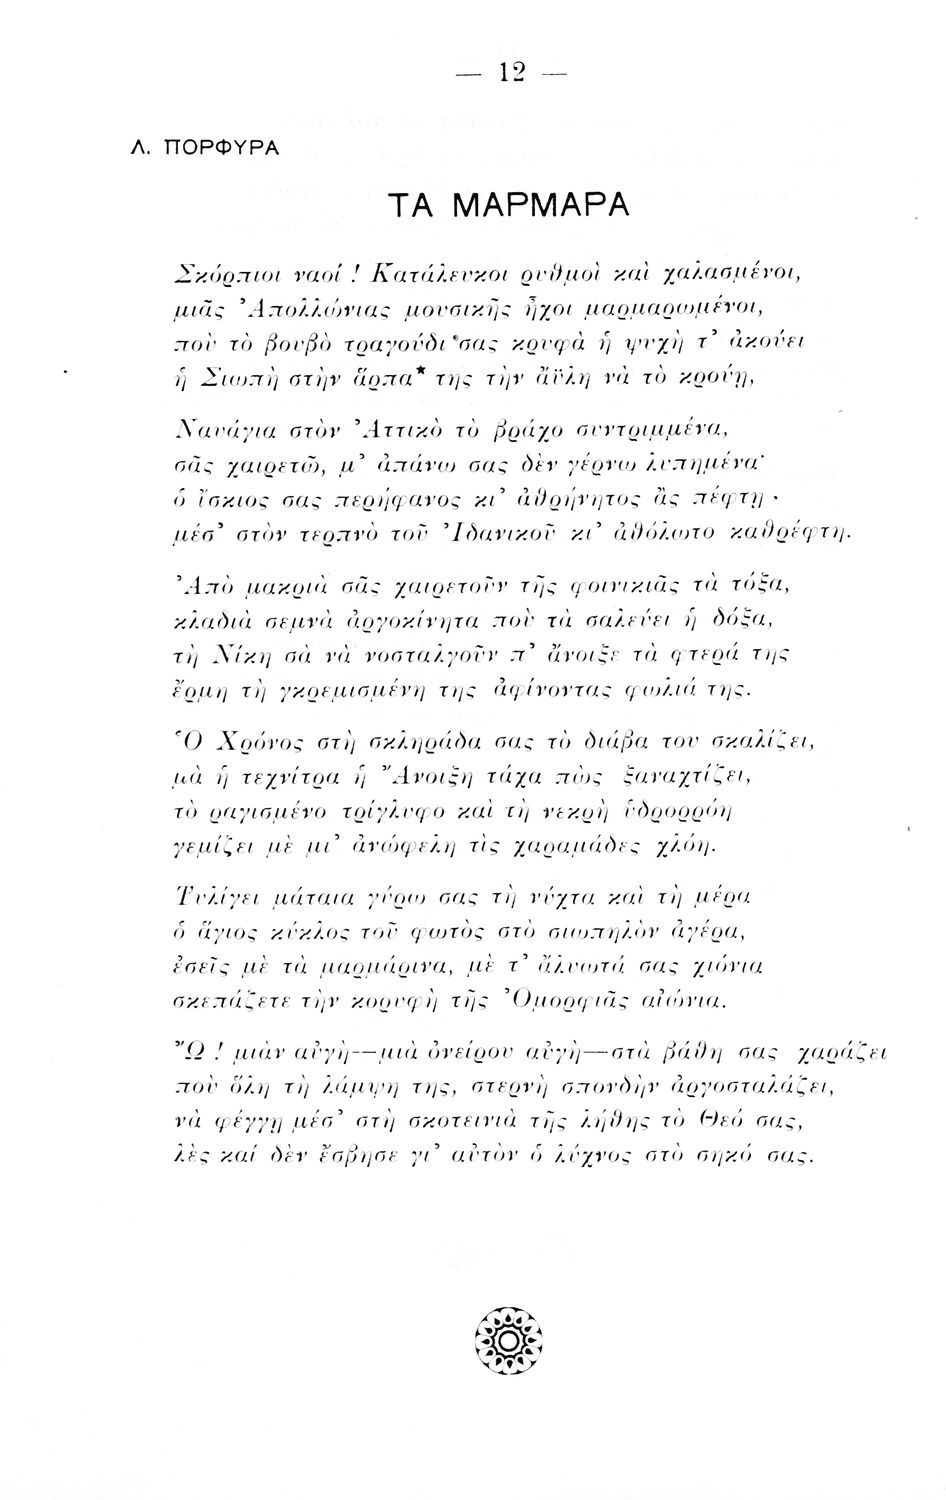 — 12 —
Λ. ΠΟΡΦΥΡΑ
ΤΑ ΜΑΡΜΑΡΑ
Σκόρπιοι ναοί ! Κατάλευκοι ρυθμοὶ καὶ χαλασμένοι,
μιᾶς Ἀπολλώνιας μουσικῆς ἦχοι μαρμαρωμένοι,
ποὺ τὸ βουβὸ τραγούδι*σας κρυφὰ ἡ ψυχὴ τ’ ἀκούει
ἡ Σιωπὴ στὴν ἅρπα* της τὴν ἄϋλη νὰ τὸ κρούῃ,
Ναυάγια στὸν Ἀττικὸ τὸ βράχο συντριμμένα,
σᾶς χαιρετῶ, μ’ ἀπάνω σας δὲν γέρνω λυπημένα·
ὁ ἴσκιος σας περήφανος κι’ ἀθρήνητος ἂς πέφτῃ ·
μέσ’ στὸν τερπνὸ τοῦ Ἰδανικοῦ κι’ ἀθόλωτο καθρέφτη.
Ἀπὸ μακριὰ σᾶς χαιρετοῦν τῆς φοινικιᾶς τὰ τόξα,
κλαδιὰ σεμνὰ ἀργοκίνητα ποὺ τὰ σαλεύει ἡ δόξα,
τὴ Νίκη σὰ νὰ νοσταλγοῦν π’ ἄνοιξε τὰ φτερά της
ἔρμη τὴ γκρεμισμένη της ἀφίνοντας φωλιά της.
Ὁ Χρόνος στὴ σκληράδα σας τὸ διάβα του σκαλίζει,
μὰ ἡ τεχνίτρα ἡ Ἄνοιξη τάχα πὼς ξαναχτίζει,
τὸ ραγισμένο τρίγλυφο καὶ τὴ νεκρὴ ὑδρορρόη
γεμίζει μὲ μι’ ἀνώφελη τὶς χαραμάδες χλόη.
Τυλίγει μάταια γύρω σας τὴ νύχτα καὶ τὴ μέρα
ὁ ἅγιος κύκλος τοῦ φωτὸς στὸ σιωπηλὸν ἀγέρα,
ἐσεῖς μὲ τὰ μαρμάρινα, μὲ τ’ ἄλυωτά σας χιόνια
σκεπάζετε τὴν κορυφὴ τῆς Ὀμορφιᾶς αἰώνια.
Ὢ ! μιὰν αὐγὴ—μιὰ ὀνείρου αὐγὴ—στὰ βάθη σας χαράζει
ποὺ ὅλη τὴ λάμψη της, στερνὴ σπονδὴν ἀργοσταλάζει,
νὰ φέγγῃ μέσ’ στὴ σκοτεινιὰ τῆς λήθης τὸ Θεό σας,
λὲς καί δὲν ἔσβησε γι’ αὐτὸν ὁ λύχνος στὸ σηκό σας.